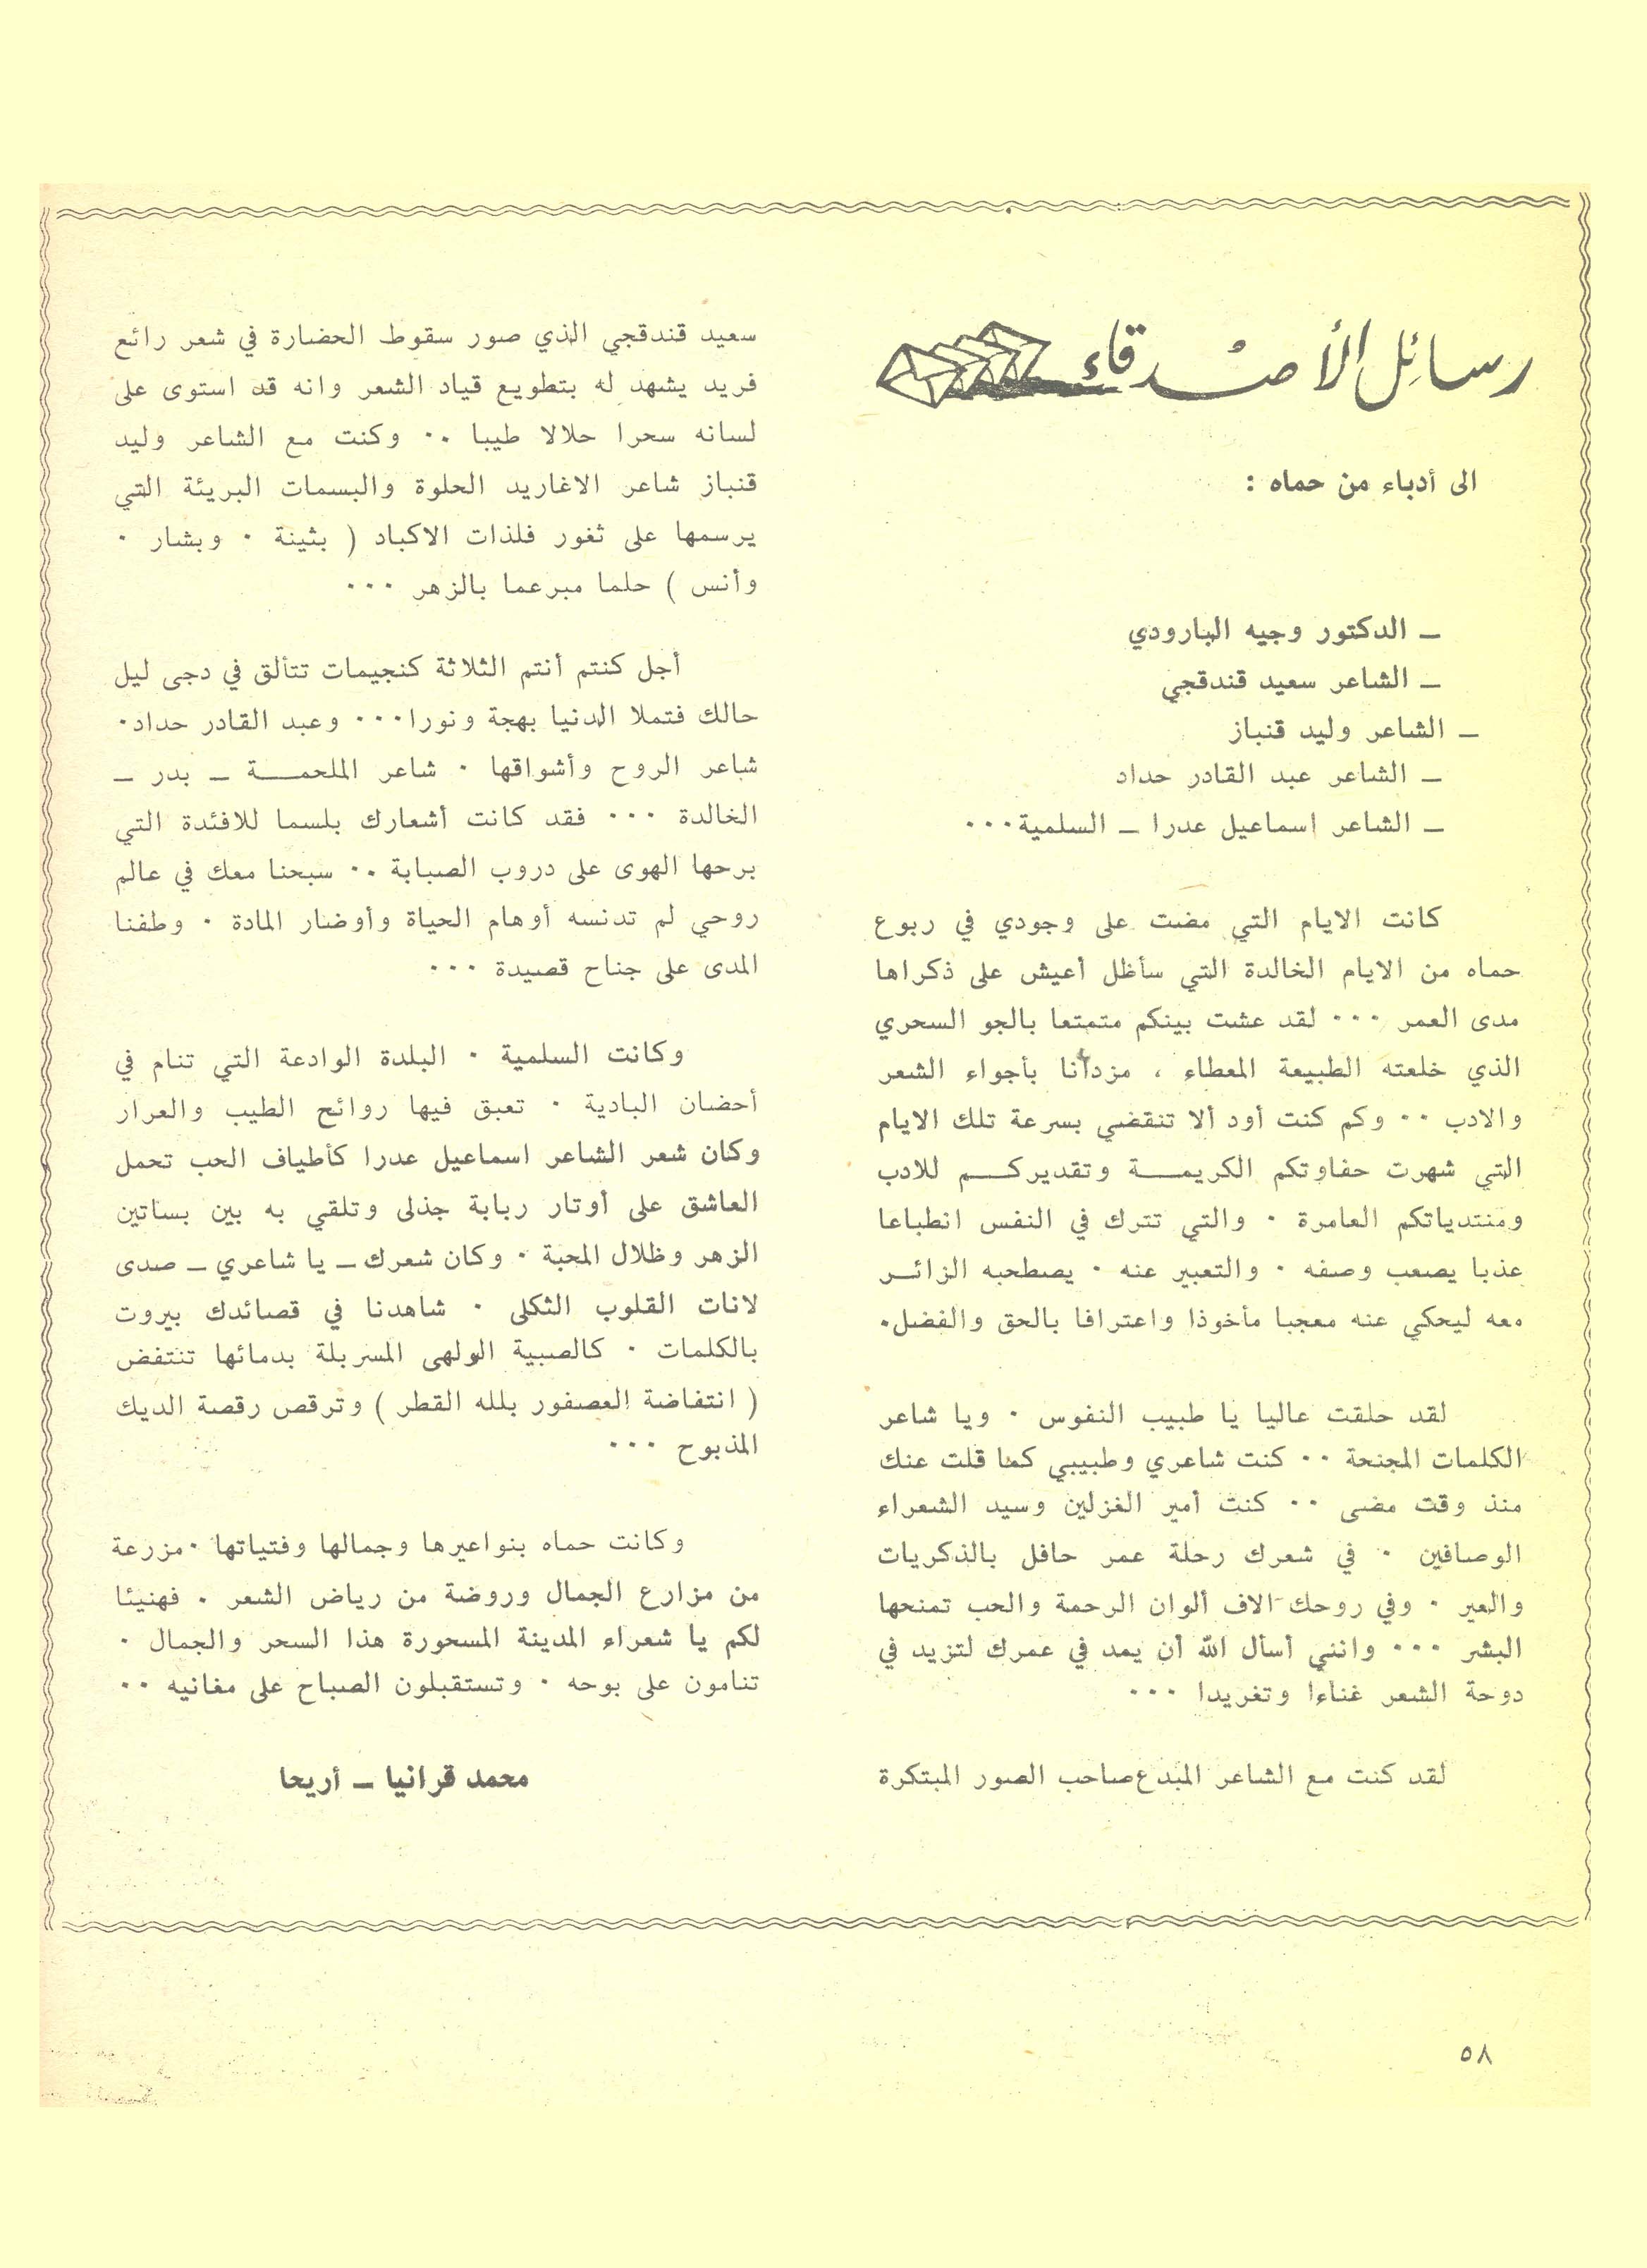 رسائل الأصدقاء
الى أدباء من حماه :
ـ الدكتور وجيه البارودي
ـ الشاعر سعيد قندقجي
ـ الشاعر وليد قنباز
ـ الشاعر عبد القادر حداد
ـ الشاعر اسماعيل عدرا ـ السلمية٠٠٠
كانت الايام التي مضت على وجودي في ربوع
حماه من الايام الخالدة التي سأظل أعيش على ذكراها
مدى العمر ٠٠٠ لقد عشت بينكم متمتعا بالجو السحري
الذي خلعته الطبيعة المعطاء ، مزدانا بأجواء الشعر
والادب ٠٠ وكم كنت أود ألا تنقضي بسرعة تلك الايام
التي شهرت حفاوتكم الكريمـــة وتقديركـــم للادب
ومنتدياتكم العامرة ٠ والتي تترك في النفس انطباعا
عذبا يصعب وصفه ٠ والتعبير عنه ٠ يصطحبه الزائــر
معه ليحكي عنه معجبا مأخوذا واعترافا بالحق والفضل٠
لقد حلقت عاليا يا طبيب النفوس ٠ ويا شاعر
الكلمات المجنحة ٠٠ كنت شاعري وطبيبي كما قلت عنك
منذ وقت مضى ٠٠ كنت أمير الغزلين وسيد الشعراء
الوصافين ٠ في شعرك رحلة عمر حافل بالذكريات
والعبر ٠ وفي روحك الاف ألوان الرحمة والحب تمنحها
البشر ٠٠٠ وانني أسأل الله أن يمد في عمرك لتزيد في
دوحة الشعر غناءا وتغريدا ٠٠٠
لقد كنت مع الشاعر المبدع صاحب الصور المبتكرة
سعيد قندقجي الذي صور سقوط الحضارة في شعر رائع
فريد يشهد له بتطويع قياد الشعر وانه قد استوى على
لسانه سحرا حلالا طيبا ٠٠ وكنت مع الشاعر وليد
قنباز شاعر الاغاريد الحلوة والبسمات البريئة التي
يرسمها على ثغور فلذات الاكباد ( بثينة ٠ وبشار ٠
وأنس ) حلما مبرعما بالزهر ٠٠٠
أجل كنتم أنتم الثلاثة كنجيمات تتألق في دجى ليل
حالك فتملا الدنيا بهجة ونورا٠٠٠ وعبد القادر حداد٠
شاعر الروح وأشواقها ٠ شاعر الملحمـــة ـ بدر ـ
الخالدة ٠٠٠ فقد كانت أشعارك بلسما للافئدة التي
برحها الهوى على دروب الصبابة ٠٠ سبحنا معك في عالم
روحي لم تدنسه أوهام الحياة وأوضار المادة ٠ وطفنا
المدى على جناح قصيدة ٠٠٠
وكانت السلمية ٠ البلدة الوادعة التي تنام في
أحضان البادية ٠ تعبق فيها روائح الطيب والعرار
وكان شعر الشاعر اسماعيل عدرا كأطياف الحب تحمل
العاشق على أوتار ربابة جذلى وتلقي به بين بساتين
الزهر وظلال المحبة ٠ وكان شعرك ـ يا شاعري ـ صدى
لانات القلوب الثكلى ٠ شاهدنا في قصائدك بيروت
بالكلمات ٠ كالصبية الولهى المسربلة بدمائها تنتفض
( انتفاضة العصفور بلله القطر ) وترقص رقصة الديك
المذبوح ٠٠٠
وكانت حماه بنواعيرها وجمالها وفتياتها ٠مزرعة
من مزارع الجمال وروضة من رياض الشعر ٠ فهنيئا
لكم يا شعراء المدينة المسحورة هذا السحر والجمال ٠
تنامون على بوحه ٠ وتستقبلون الصباح على مغانيه ٠٠
محمد قرانيا ـ أريحا
٥٨